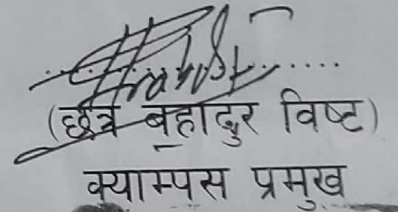 (छत्र बहादुर विष्ट)
क्याम्पस प्रमुख